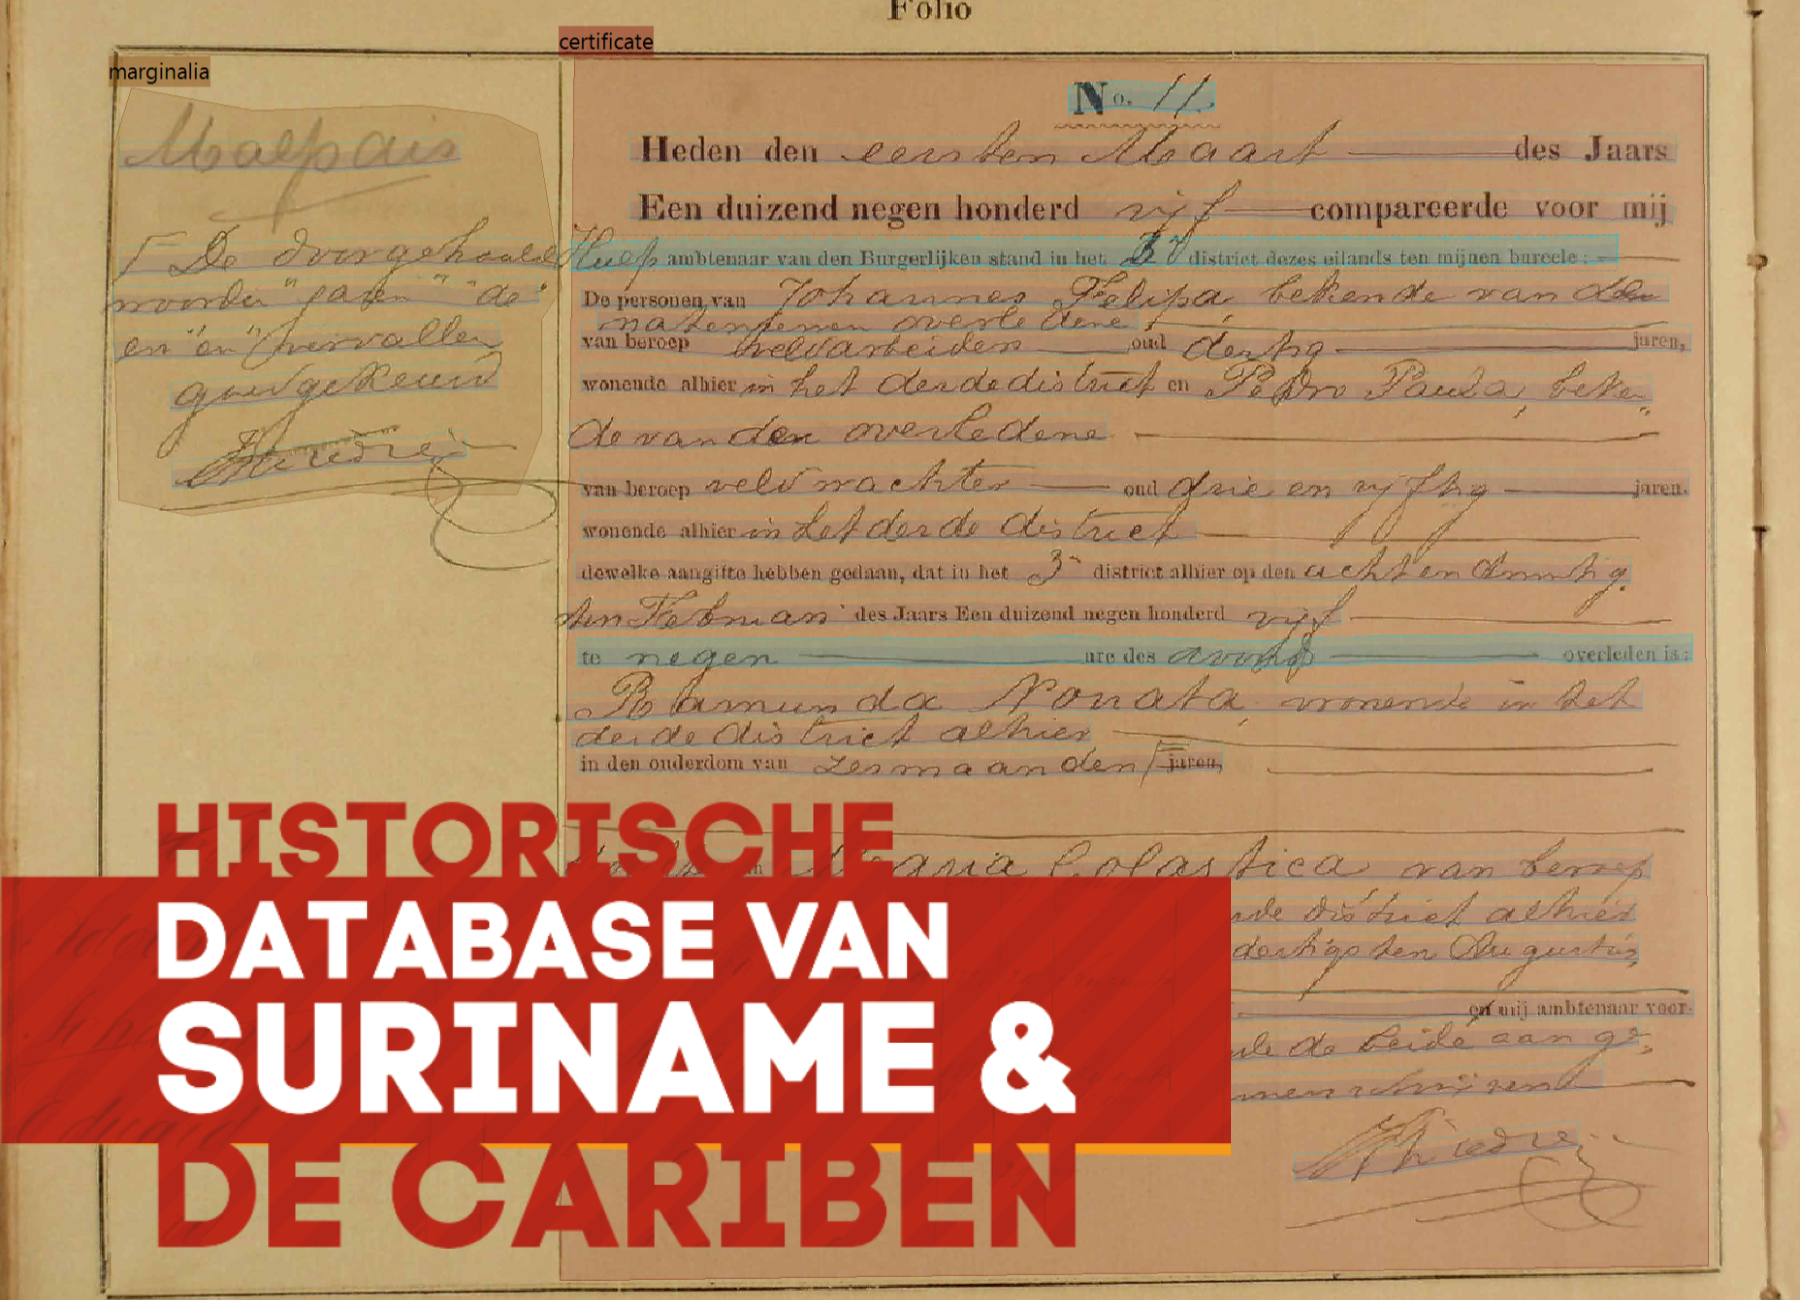 Folio
certificate
marginalia
Malpais
De doorgehaalde
woorden "jaren" "de"
en "en" vervallen
goedgekeurd
No. 11.
Heden den eersten Maart des Jaars
Een duizend negen honderd vijf compareerde voor mij
Hulp ambtenaar van den Burgerlijken stand in het 3e district dezes eilands ten mijnen bureele:
De personen van Johannes Felipa, bekende van de
natenoemen overledene,
van beroep veldarbeider oud dertig jaren,
wonende alhier in het derde district en Pedro Paula, beken-
de van den overledene
van beroep veldwachter oud drie en vijftig jaren.
wonende alhier in het derde district
dewelke aangifte hebben gedaan, dat in het 3e district alhier op den acht en twintig
sten Februari des Jaars Een duizend negen honderd vijf
te negen ure des avonds overleden is:
Ramunda Nonata, wonende in het
derde district alhier
in den ouderdom van zes maanden jaren,
Maria Colastica van beroep
district alhier
dertigsten Augustus,
en mij ambtenaar voor-
de beide aange-
HISTORISCHE
DATABASE VAN
SURINAME &
DE CARIBEN